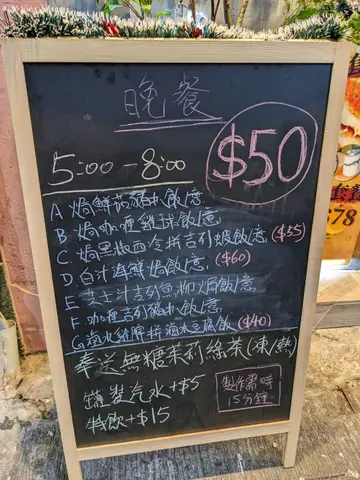 晚餐
$50
5:00-8:00
A 焗鮮茄豬扒飯/意
B 焗咖喱雞球飯/意
C 焗黑椒西冷拼吉列蝦飯/意 ($55)
D 白汁海鮮焗飯/意 ($60)
E 芝士汁吉列魚柳焗飯/意
F 咖喱吉列豬扒飯/意
G 豆腐飯 ($40)
奉送無糖茉莉綠茶(凍/熱)
罐裝汽水+$5
特飲+$15
製作需時
15分鐘
78